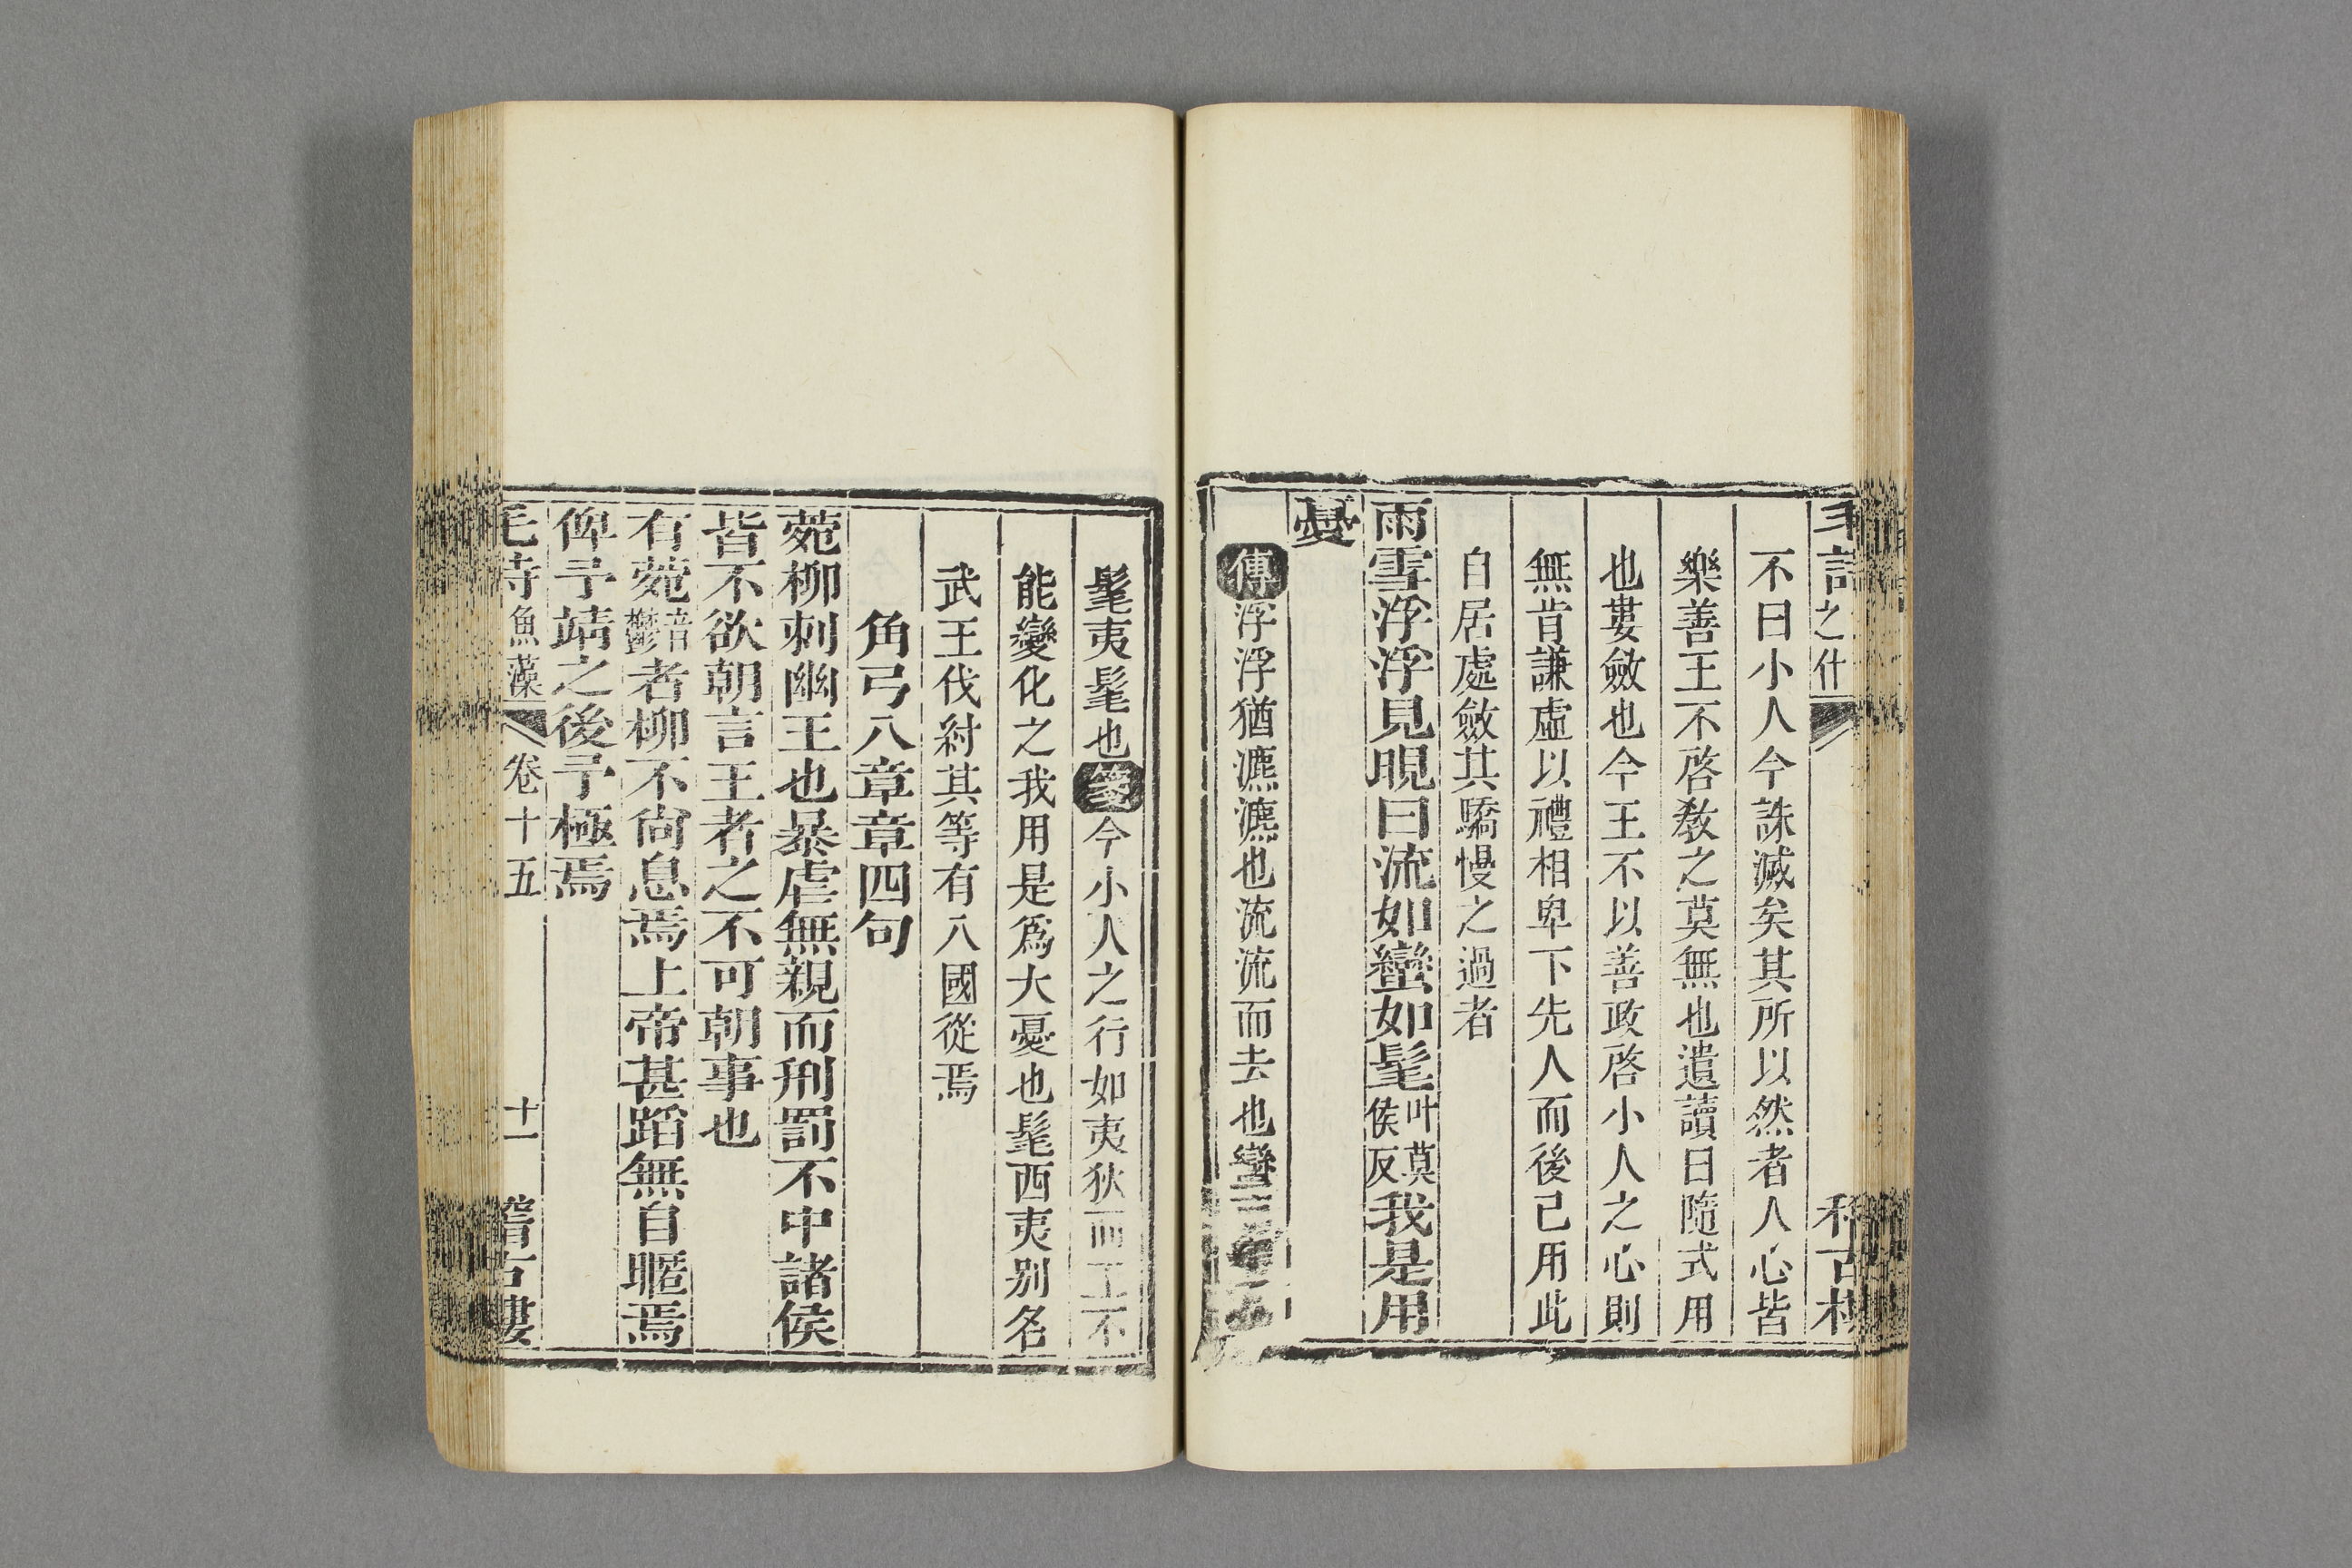 詩之什
不曰小人今誅滅矣其所以然者人心皆
樂善王不啓敎之莫無也遺讀曰隨式用
也婁斂也今王不以善政啓小人之心則
無肯謙虛以禮相卑下先人而後己用此
自居處斂其驕慢之過者
雨雪浮浮見晛曰流如蠻如髦叶莫侯反我是用
憂
傳浮浮猶瀌瀌也流流而去也蠻
髦夷髦也箋今小人之行如夷狄而王不
能變化之我用是爲大憂也髦西夷别名
武王伐紂其等有八國從焉
角弓八章章四句
菀柳刺幽王也暴虐無親而刑罰不中諸侯
皆不欲朝言王者之不可朝事也
有菀音鬱者柳不尙息焉上帝甚蹈無自暱焉
俾予靖之後予極焉
毛詩魚藻 卷十五 十一 稽古樓